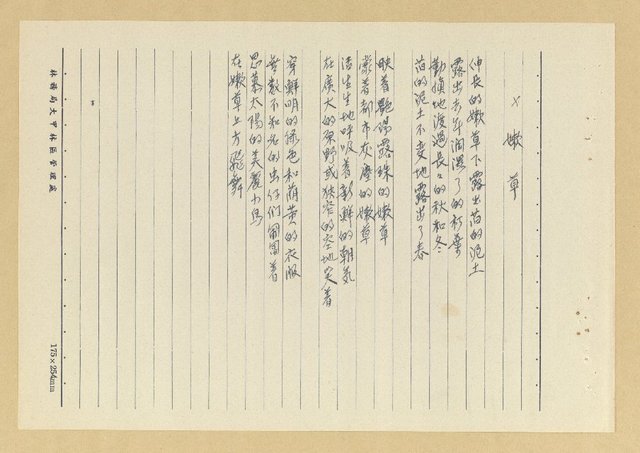 × 嫩草
伸長的嫩草下露出苗的泥土
露出去年潤濕了的朽葉
勤勉地渡過長長的秋和冬
苗的泥土不变地露出了春
映着艷陽露珠的嫩草
蒙着都市灰塵的嫩草
活生生地呼吸着新鮮的朝気
在廣大的原野或狭窄的空地笑着
穿鮮明的綠色和萠黄的衣服
無数不知名的虫仔们閙着
思慕太陽的美麗小鳥
在嫩草上方飛舞
林務局大甲林區管理處
175×254mm